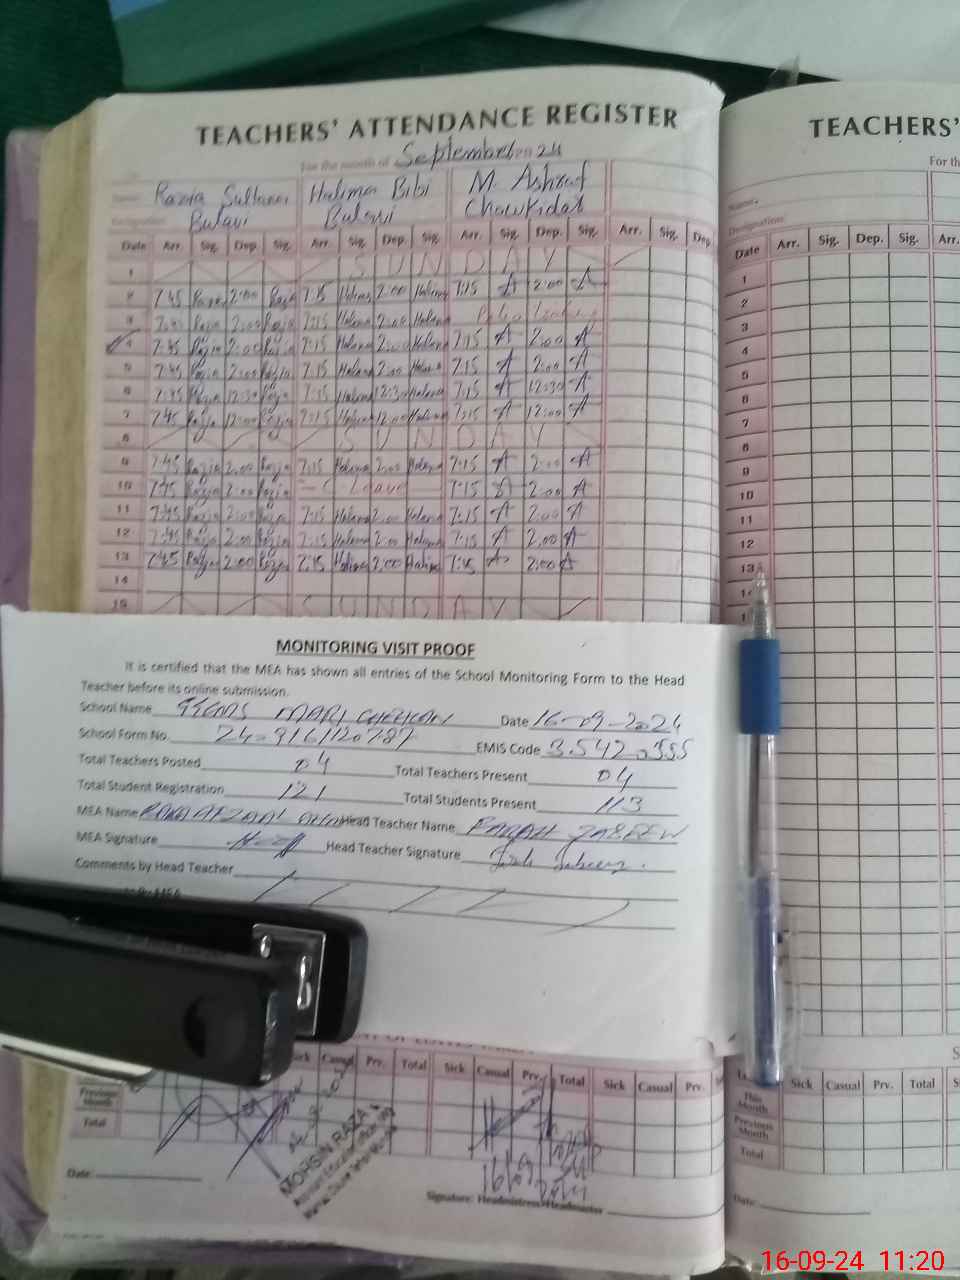 TEACHERS' ATTENDANCE REGISTER
For the month of September 2024
Name: Razia Sultana Halima Bibi M. Ashraf
Designation: Bulavi Bulavi Chowkidar
Date Arr. Sig. Dep. Sig. Arr. Sig. Dep. Sig. Arr. Sig. Dep. Sig. Arr. Sig. Dep.
1 SUNDAY
2 7:45 Razia 2:00 Razia 7:15 Halema 2:00 Halema 7:15 A 2:00 A
3 7:45 Razia 2:00 Razia 7:15 Halema 2:00 Halema Polio
4 7:45 Razia 2:00 Razia 7:15 Halema 2:00 Halema 7:15 A 2:00 A
5 7:45 Razia 2:00 Razia 7:15 Halema 2:00 Halema 7:15 A 2:00 A
6 7:45 Razia 12:30 Razia 7:15 Halema 12:30 Halema 7:15 A 12:30 A
7 7:45 Razia 12:00 Razia 7:15 Halema 12:00 Halema 7:15 A 12:00 A
8 SUNDAY
9 7:45 Razia 2:00 Razia 7:15 Halema 2:00 Halema 7:15 A 2:00 A
10 7:45 Razia 2:00 Razia C Leave 7:15 A 2:00 A
11 7:45 Razia 2:00 Razia 7:15 Halema 2:00 Halema 7:15 A 2:00 A
12 7:45 Razia 2:00 Razia 7:15 Halema 2:00 Halema 7:15 A 2:00 A
13 7:45 Razia 2:00 Razia 7:15 Halima 2:00 Halima 7:15 A 2:00 A
14
15 SUNDAY
MONITORING VISIT PROOF
It is certified that the MEA has shown all entries of the School Monitoring Form to the Head
Teacher before its online submission.
School Name Date 16-09-2024
School Form No. EMIS Code
Total Teachers Posted 04 Total Teachers Present 04
Total Student Registration 121 Total Students Present 113
MEA Name Head Teacher Name FARAH ZABEEN
MEA Signature Head Teacher Signature
Comments by Head Teacher
Sick Casual Prv. Total Sick Casual Prv. Total Sick Casual Prv.
Previous Month
Total
MOHSIN RAZA
Assistant Education Officer
16/09
2024
Date:
Signature: Headmistress/Headmaster
TEACHERS'
Name:
Designation:
Date Arr. Sig. Dep. Sig. Arr.
1
2
3
4
5
6
7
8
9
10
11
12
13
Sick Casual Prv. Total
This Month
Previous Month
Total
Date:
16-09-24 11:20